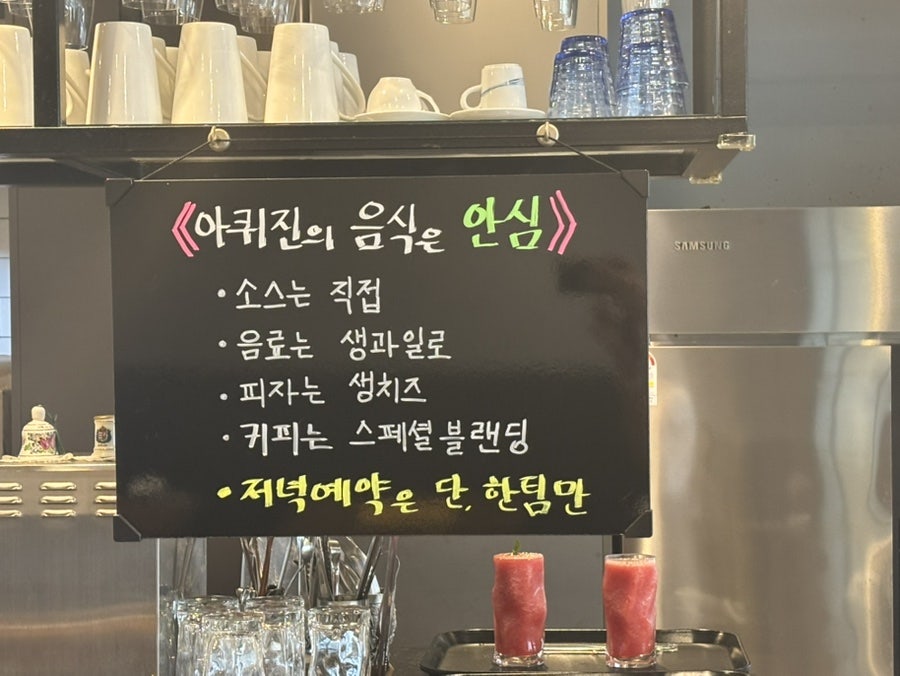 《아퀴진의 음식은 안심》
• 소스는 직접
• 음료는 생과일로
• 피자는 생치즈
• 커피는 스페셜블랜딩
• 저녁예약은 단, 한팀만
SAMSUNG